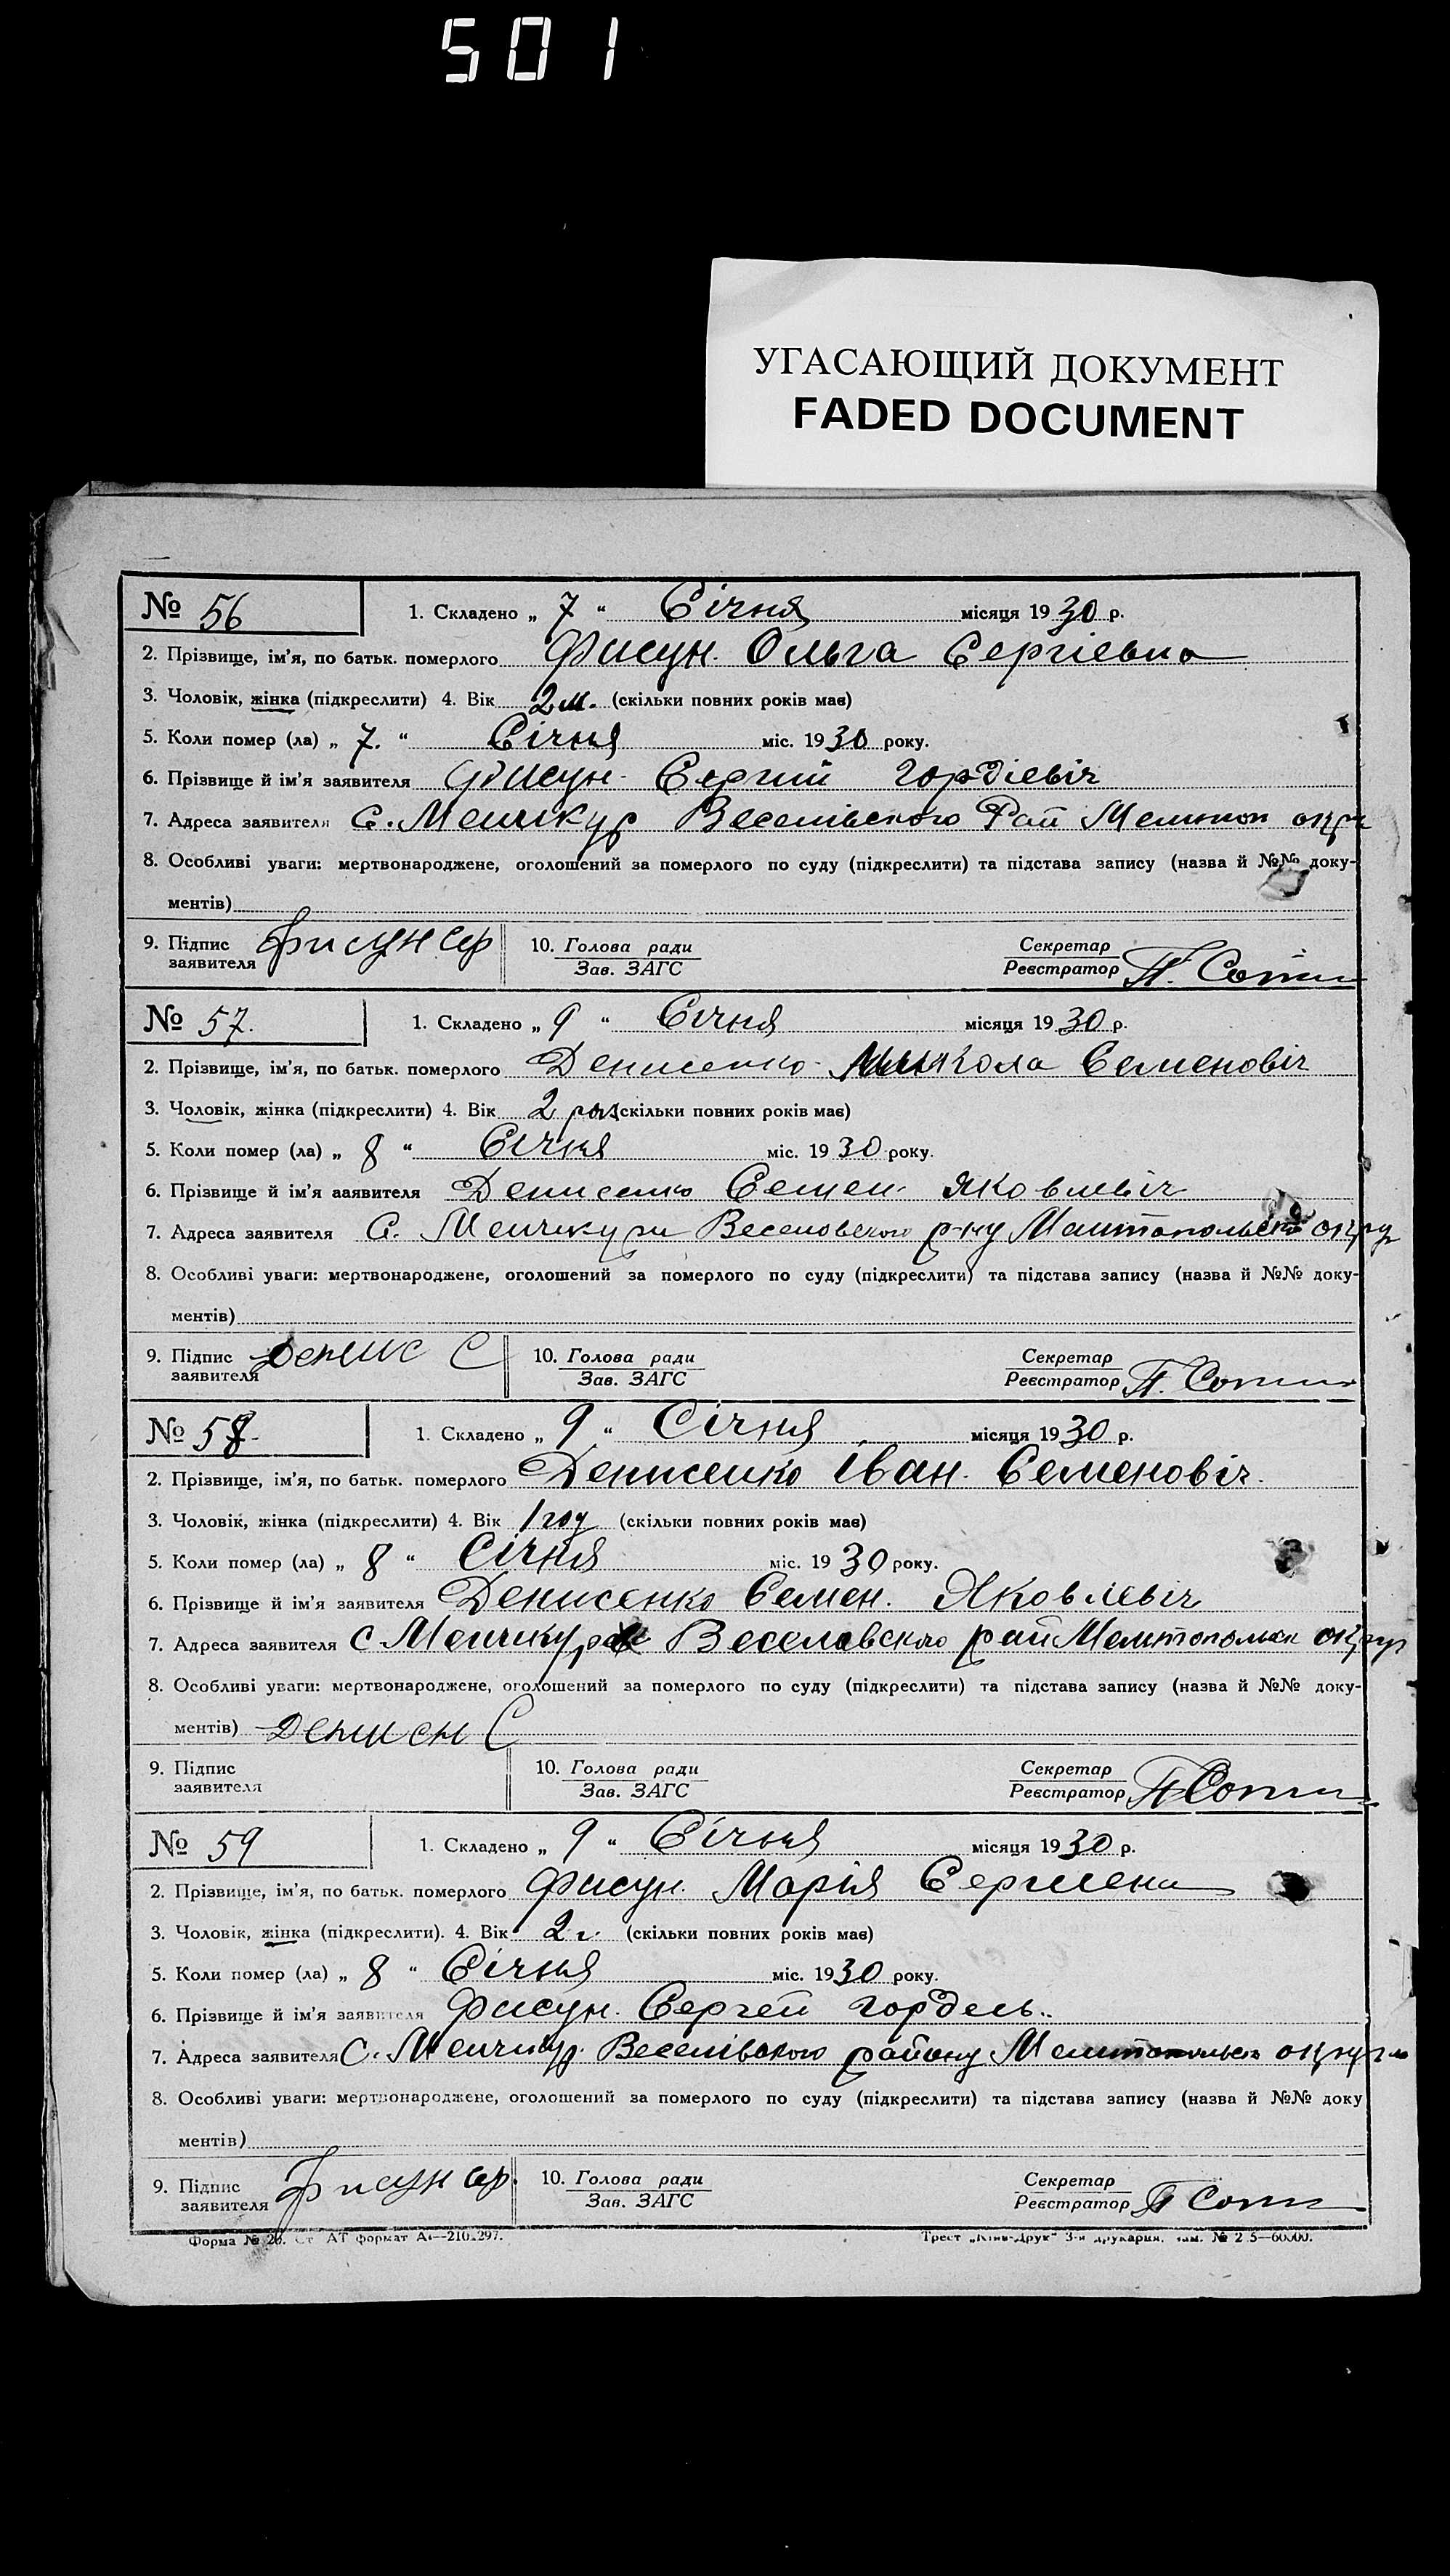 501
УГАСАЮЩИЙ ДОКУМЕНТ
FADED DOCUMENT
№ 56 1. Складено „ 7 “ Січня місяця 1930 р.
2. Прізвище, ім’я, по батьк. померлого Фисун Ольга Сергіевна
3. Чоловік, жінка (підкреслити) 4. Вік 2 м. (скільки повних років має)
5. Коли помер (ла) „ 7. “ Січня міс. 1930 року.
6. Прізвище й ім’я заявителя Фисун Сергий Гордіевіч
7. Адреса заявителя С. Менчикур Веселівського Рай Мелитоп окру
8. Особливі уваги: мертвонароджене, оголошений за померлого по суду (підкреслити) та підстава запису (назва й №№ доку-
ментів)
9. Підпис заявителя Фисун Сер 10. Голова ради Зав. ЗАГС Секретар Реєстратор П.
№ 57. 1. Складено „ 9 “ Січня місяця 1930 р.
2. Прізвище, ім’я, по батьк. померлого Денисенко Микола Семеновіч
3. Чоловік, жінка (підкреслити) 4. Вік 2 рок (скільки повних років має)
5. Коли помер (ла) „ 8 “ Січня міс. 1930 року.
6. Прізвище й ім’я заявителя Денисенко Семен Яковлевіч
7. Адреса заявителя С. Менчикури Веселовского р-ну окру
8. Особливі уваги: мертвонароджене, оголошений за померлого по суду (підкреслити) та підстава запису (назва й №№ доку-
ментів)
9. Підпис заявителя Денис С 10. Голова ради Зав. ЗАГС Секретар Реєстратор П.
№ 58 1. Складено „ 9 “ Січня місяця 1930 р.
2. Прізвище, ім’я, по батьк. померлого Денисенко Іван Семеновіч.
3. Чоловік, жінка (підкреслити) 4. Вік 1 год (скільки повних років має)
5. Коли помер (ла) „ 8 “ Січня міс. 1930 року.
6. Прізвище й ім’я заявителя Денисенко Семен. Яковлевіч
7. Адреса заявителя С Менчикур Веселовского рай Мелитопольск округ
8. Особливі уваги: мертвонароджене, оголошений за померлого по суду (підкреслити) та підстава запису (назва й №№ доку-
ментів) Денисен С
9. Підпис заявителя 10. Голова ради Зав. ЗАГС Секретар Реєстратор П
№ 59 1. Складено „ 9 “ Січня місяця 1930 р.
2. Прізвище, ім’я, по батьк. померлого Фисун Марія
3. Чоловік, жінка (підкреслити). 4. Вік 2 г. (скільки повних років має)
5. Коли помер (ла) „ 8 “ Січня міс. 1930 року.
6. Прізвище й ім’я заявителя Фисун Сергей Гордеев.
7. Адреса заявителя С. Менчикур Веселівского району округи
8. Особливі уваги: мертвонароджене, оголошений за померлого по суду (підкреслити) та підстава запису (назва й №№ доку
ментів)
9. Підпис заявителя Фисун Сер. 10. Голова ради Зав. ЗАГС Секретар Реєстратор П
Форма № 20. АТ формат 297. Трест „Київ-Друк“ 3-я друкарня. 60000.